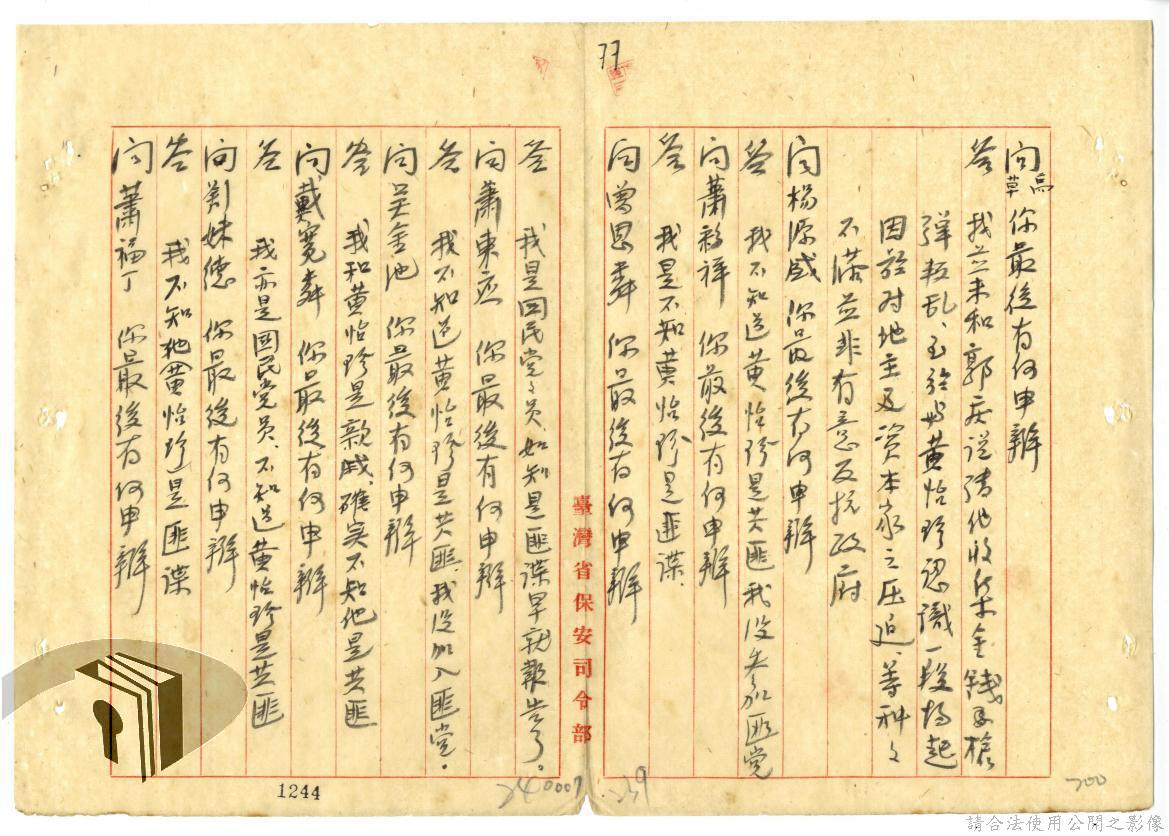 77
問 你最後有何申辯
答 我並未和郭
彈叛乱、至於與黃怡珍認識一段
因於对地主及資本家之压迫、等种々
不滿並非有意反抗政府
問 楊源盛 你最後有何申辯
答 我不知道黃怡珍是共匪我没参加匪党
問 蕭 祥 你最後有何申辯
答 我是不知黃怡珍是匪諜.
問 曾恩 你最後有何申辯
臺灣省保安司令部
答 我是囯民党々员、如知是匪諜早就報告了。
問 蕭東 你最後有何申辯
答 我不知道黃怡珍是共匪、我没加入匪党。
問 吴金池 你最後有何申辯
答 我和黃怡珍是親戚、確实不知他是共匪
問 戴寬 你最後有何申辯
答 我亦是國民党员、不知道黃怡珍是共匪
問 妹德 你最後有何申辯
答 我不知他黃怡珍是匪諜
問 蕭福丁 你最後有何申辯
1244
240007
239
200
請合法使用公開之影像